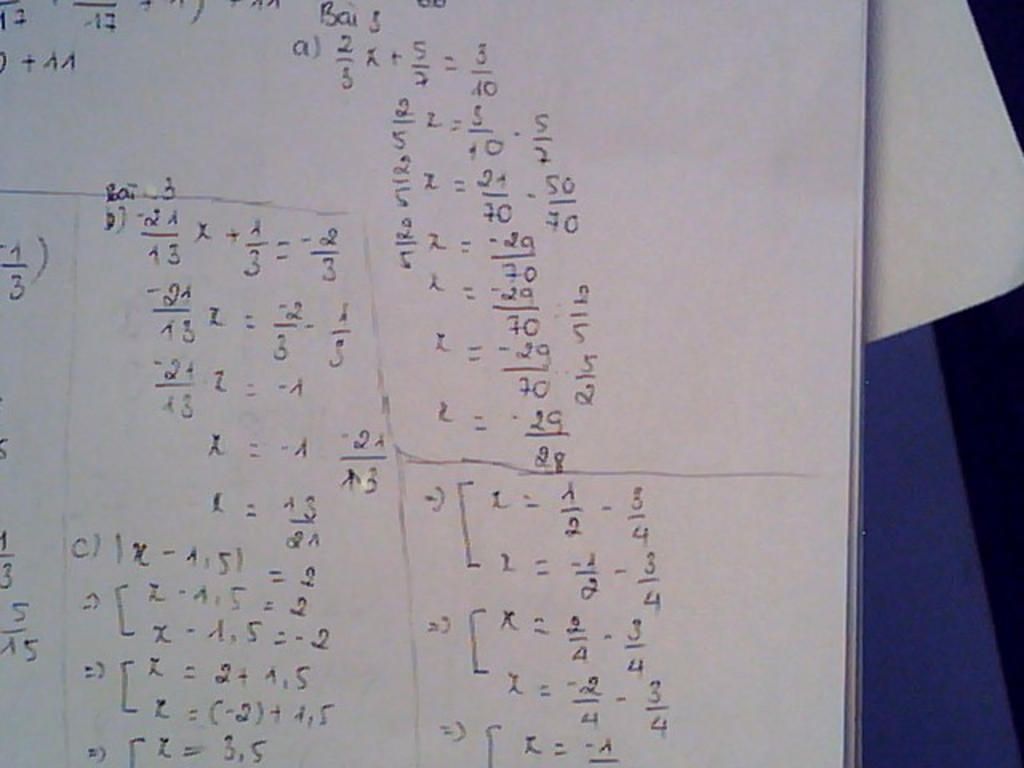 0 + 11
Bài 3
a) 2/3 x + 5/7 = 3/10
x = 3/10 - 5/7
x = 21/70 - 50/70
x = -29/70
x = -29/70
x = -29/70
x = -29/28
Bài 3
b) -21/13 x + 1/3 = -2/3
-21/13 x = -2/3 - 1/3
-21/13 x = -1
x = -1 -21/13
x = 13/21
c) |x - 1,5| = 2
=> [ x - 1,5 = 2
x - 1,5 = -2
=> [ x = 2 + 1,5
x = (-2) + 1,5
=> [ x = 3,5
=> [ x = 1/2 - 3/4
x = -1/2 - 3/4
=> [ x = 2/4 - 3/4
x = -2/4 - 3/4
=> [ x = -1